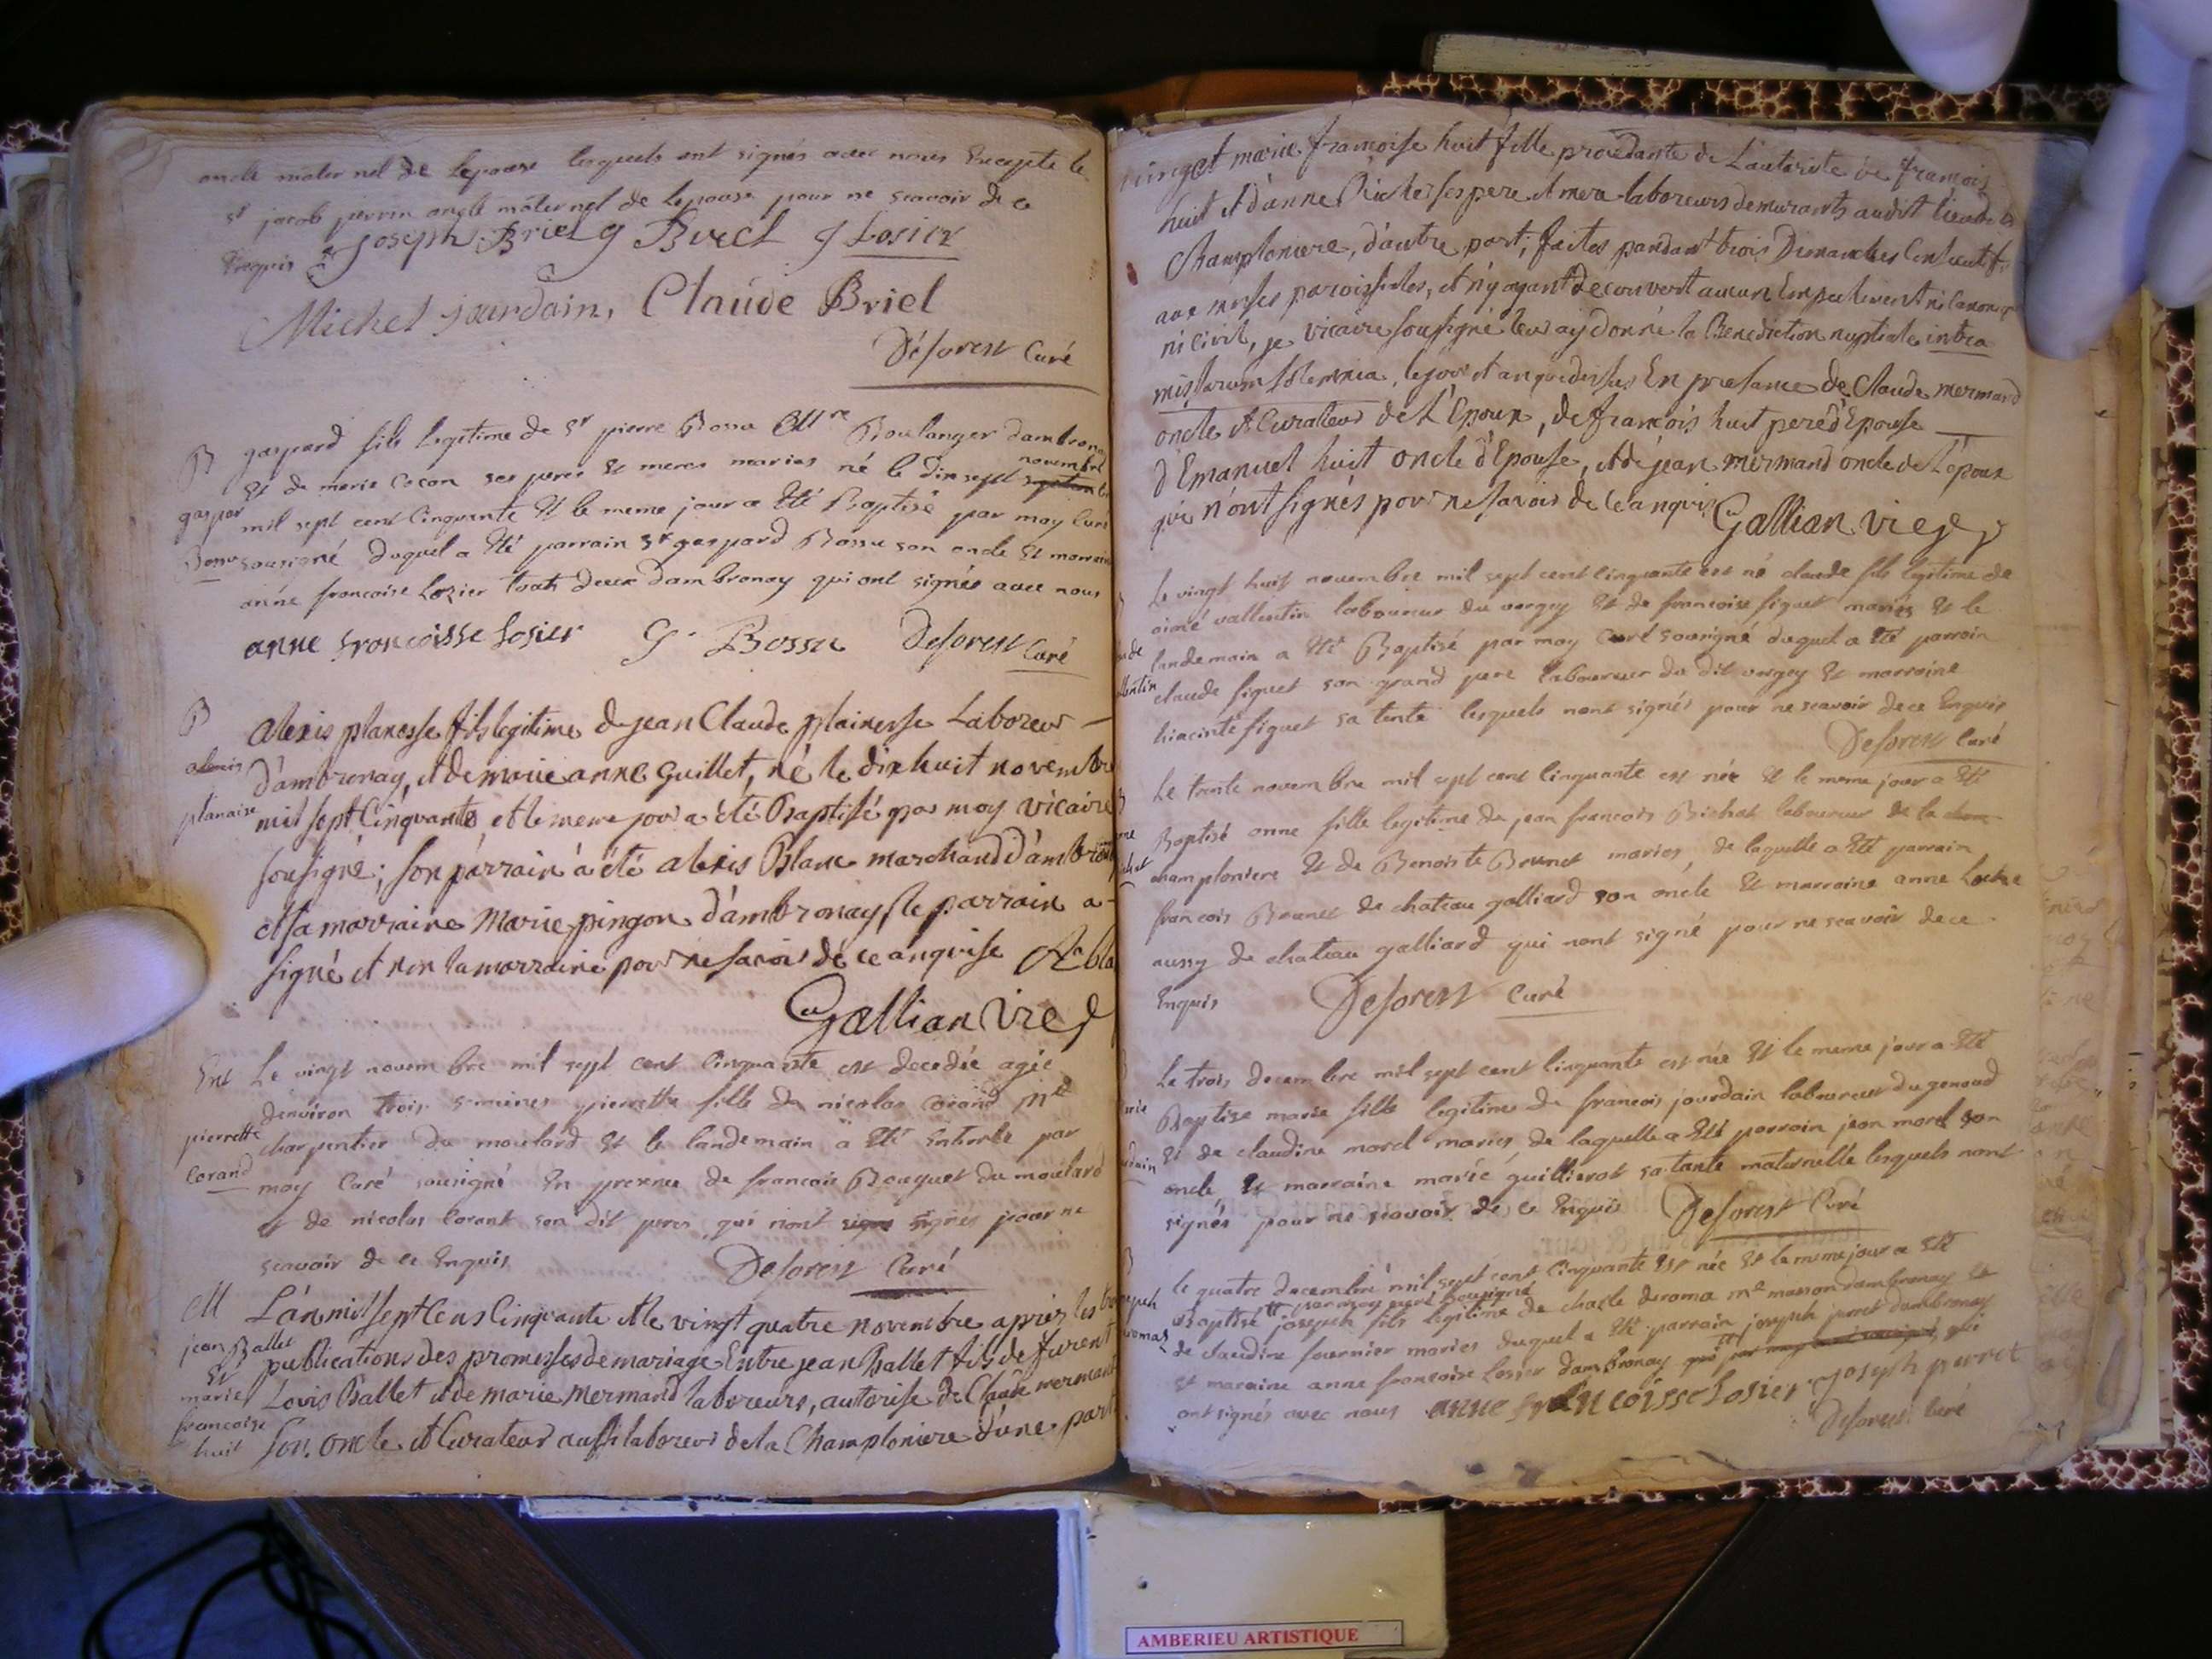 oncle maternel de lepouse lesquels ont signés avec nous Excepte le
sr jacob perrin oncle maternel de lepouse pour ne scavoir de ce
Enquis Joseph Briel g Briel g Losier
Michel jourdain, Claude Briel
Deforest Curé
B gaspard fils legitime de sr pierre Bossu Mre Boulanger dambronay
Et de marie cocon ses peres et meres maries né le dix sept novembre
gaspar mil sept cent Cinquante Et le meme jour a Eté Baptisé par moy Curé
Bossu sousigné duquel a Eté parrain sr gaspard Bossu son oncle Et marraine
anne francoise Lozier touts deux dambronay qui ont signés avec nous
anne francoisse losier G. Bossu Deforest Curé
B alexis planesse fils legitime de jean Claude plainesse Laboreur
alexis d'ambronay, et de marie anne Guillet, né le dix huit novembre
planaise mil sept Cinquante, et le meme jour a été Baptisé par moy vicaire
sousigné; son parrain à été alexis Blanc marchand d'ambronay
et sa marraine Marie pingon d'ambronay, le parrain a
signé et non la marraine pour ne savoir de ce anquise A bla
Gallian vic
Ent Le vingt novembre mil sept cent Cinquante est decedée agée
denviron trois semaines pierrette fille de nicolas corand me
pierrette charpentier du moulard Et le landemain a Eté Enterrée par
Corand moy Curé sousigné En presence de francois Bouquet du moulard
et de nicolas Corant son dit pere qui nont signé signés pour ne
scavoir de ce Enquis Deforest Curé
M L'an mil sept Cens Cinquante et le vingt quatre novembre après les
jean Ballet Et publications des promesses de mariage Entre jean Ballet fils de furent
marie Louis Ballet et de marie mermand laboreurs, autorise de Claude mermand
francoise
huit son oncle et Curateur aussi laboreur de la Champloniere d'une part
et marie francoise huit fille procedante de L'autorite de francois
huit et d'anne Richet ses pere et mere laboreurs demurants audit lieu de la
Champloniere, d'autre part; faites pandant trois Dimanches Consecutifs
aux messes paroissiales, et n'y ayant decouvert aucun Empechement ni Canonique
ni Civil, je vicaire sousigné leur ay donné la Benediction nuptiale intra
missarum solemnia, le jour et an que dessus En presance de Claude mermand
oncle et Curateur de L'Epoux, de francois huit pere d'Epouse
d'Emanuel huit oncle d'Epouse, et de jean mermand oncle de L'époux
qui n'ont signés pour ne savoir de ce anquis Gallian vic
Le vingt huit novembre mil sept cent Cinquante est né claude fils legitime de
aimé vallentin laboureur du vorgey Et de francoise figuet mariés Et le
landemain a Eté Baptisé par moy Curé sousigné duquel a Eté parrain
claude figuet son grand pere laboureur du dit vorgey Et marraine
hiacinte figuet sa tente lesquels nont signés pour ne scavoir de ce Enquis
Deforest Curé
Le trente novembre mil sept cent Cinquante est née Et le meme jour a Eté
Baptisé anne fille legitime de jean francois Bichat laboureur de la
champloniere Et de Benoiste Brunet maries, de laquelle a Eté parrain
francois Brunet de chateau galliard son oncle Et marraine anne
aussy de chateau galliard qui nont signé pour ne scavoir de ce
Enquis Deforest Curé
Le trois decembre mil sept cent Cinquante est née Et le meme jour a Eté
Baptisé marie fille legitime de francois jourdain laboureur du genoud
Et de claudine morel maries, de laquelle a Eté parrain jean morel son
oncle Et marraine marie guillierot sa tante maternelle lesquels nont
signés pour ne scavoir de ce Enquis Deforest Curé
le quatre decembre mil sept cent Cinquante Est née Et le meme jour a Eté
par moy curé sousigné
Baptisé joseph fils legitime de charle deroma me masson dambronay Et
de claudine fournier maries duquel a Eté parrain joseph perret dambronay
Et maraine anne francoise Losier dambronay qui
ont signés avec nous anne francoisse losier Joseph perret
Deforest Curé
AMBERIEU ARTISTIQUE